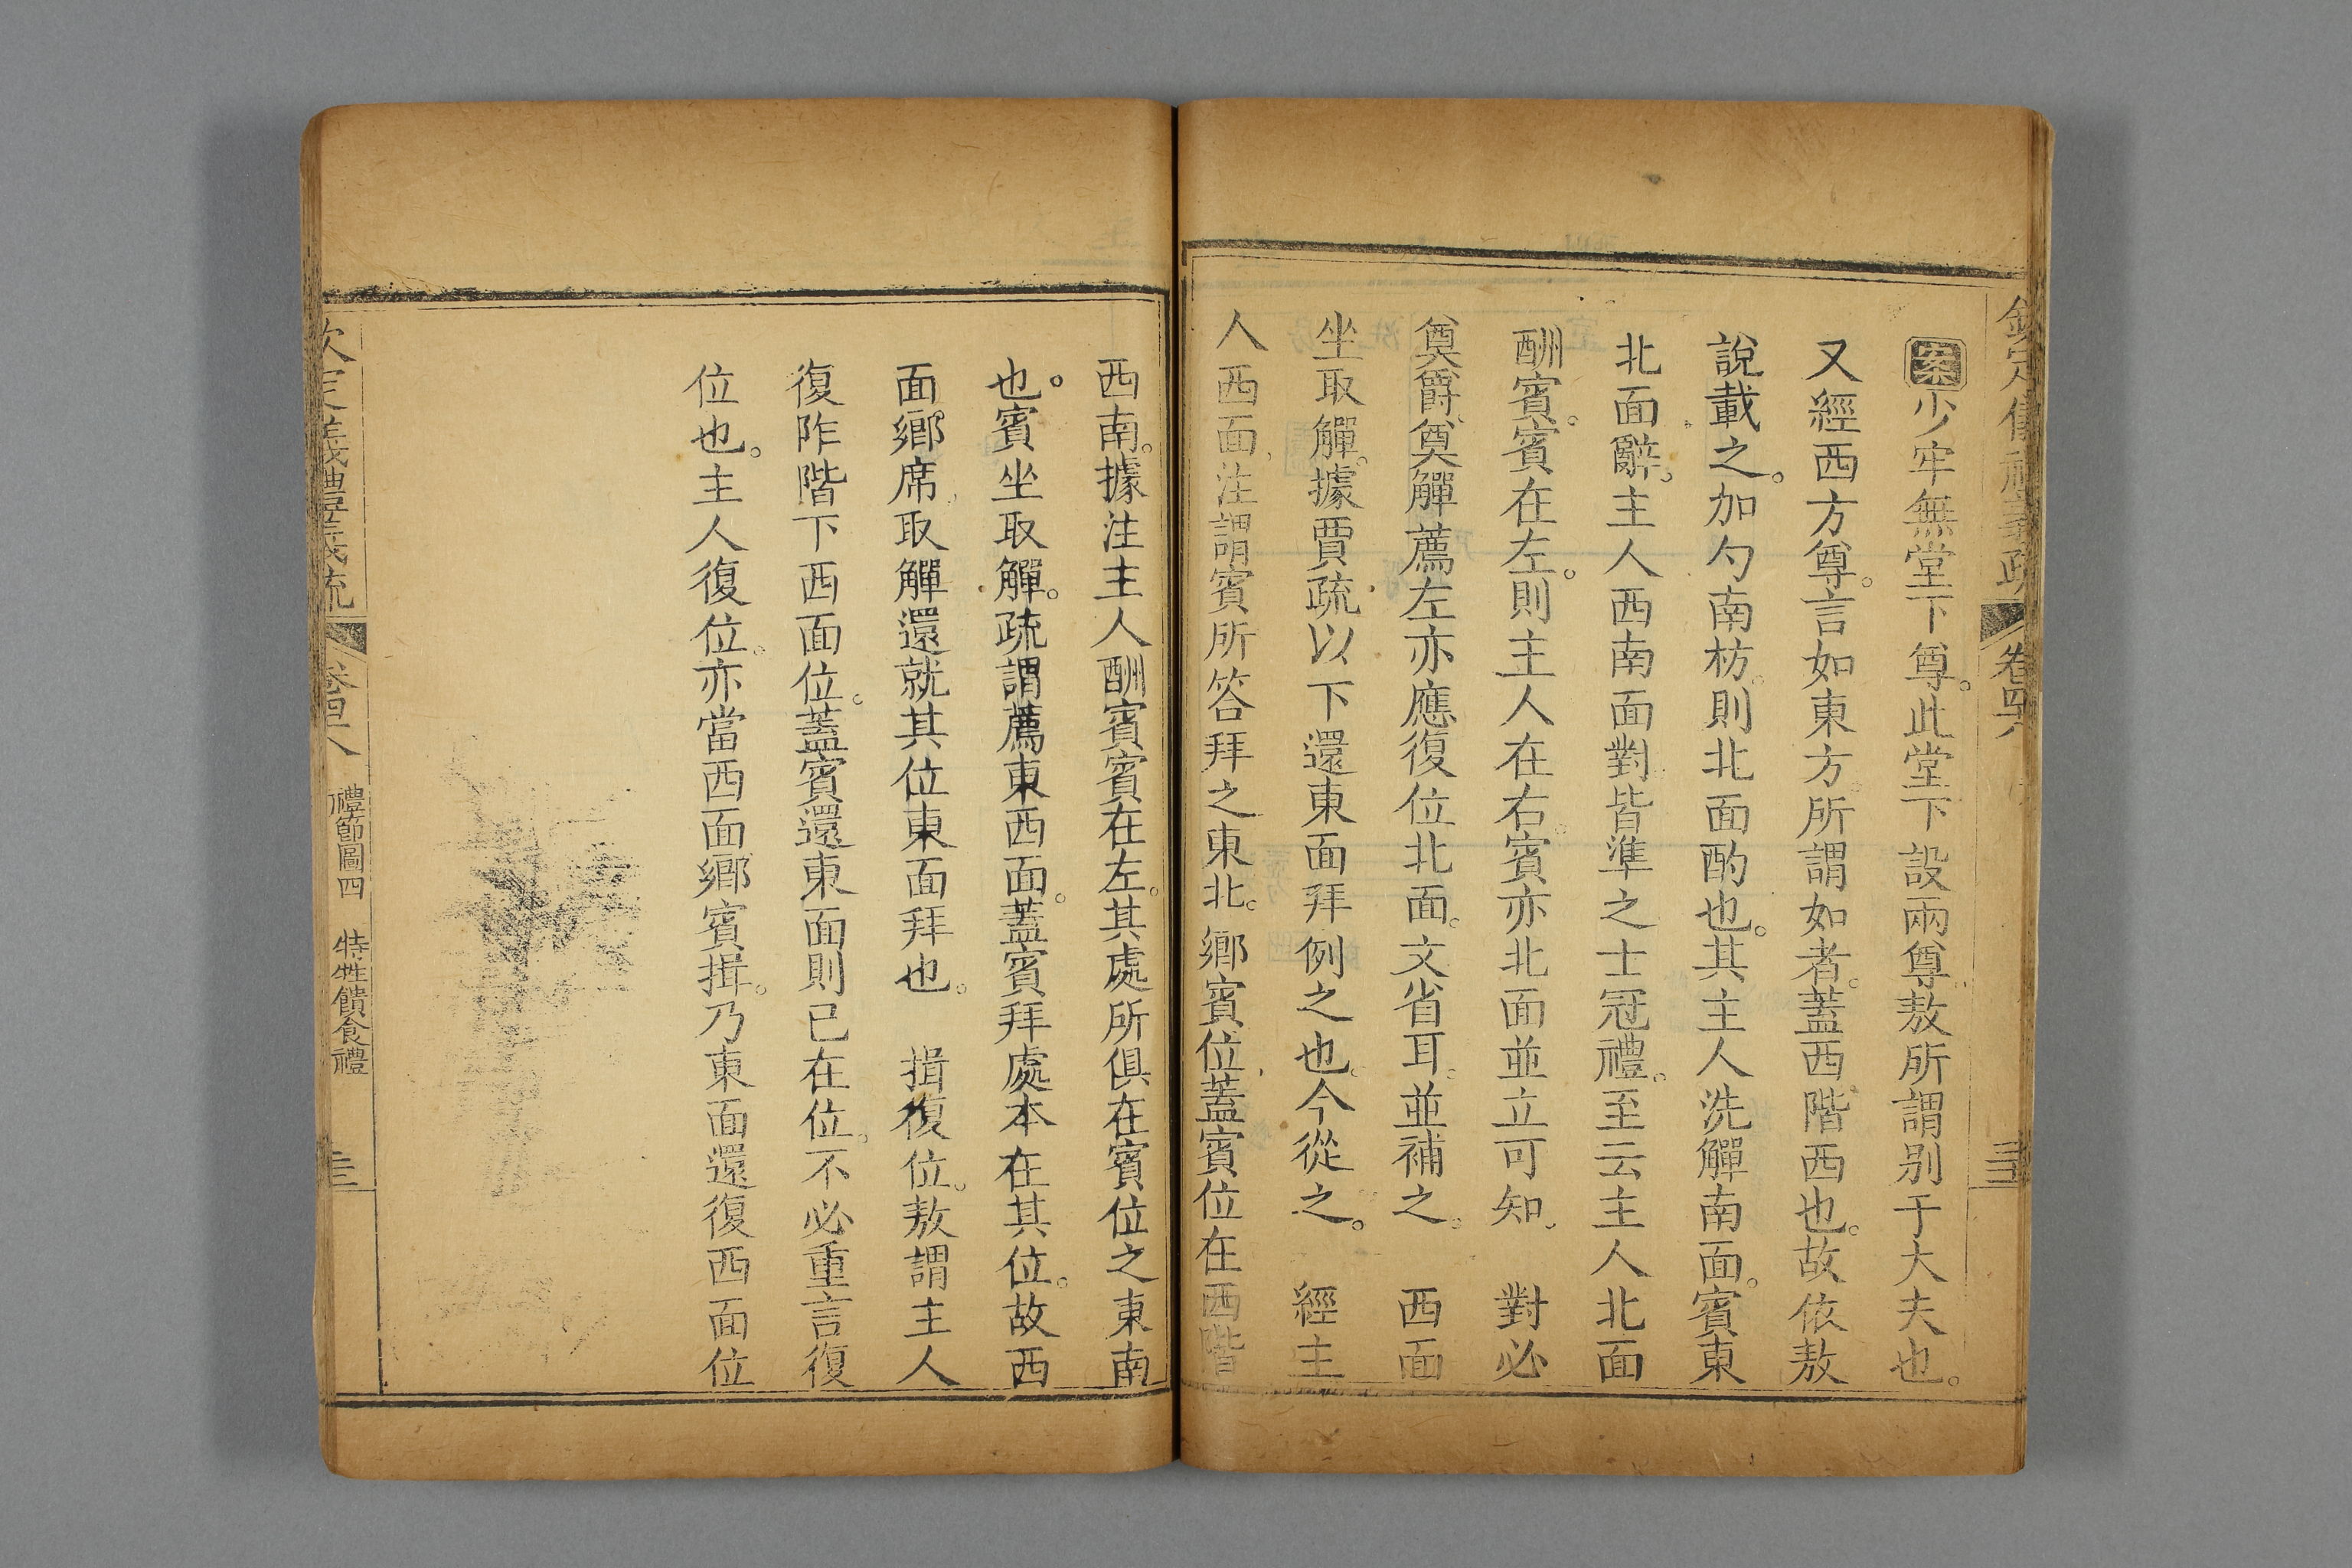 欽定儀禮義疏 卷四八
案少牢無堂下尊。此堂下設兩尊敖所謂别于大夫也。
又經西方尊。言如東方。所謂如者。蓋西階西也。故依敖
說載之。加勺南枋。則北面酌也。其主人洗觶南面。賓東
北面辭。主人西南面對皆準之士冠禮。至云主人北面
酬賓。賓在左。則主人在右。賓亦北面並立可知。 對必
奠爵。奠觶薦左亦應復位北面。文省耳。並補之。 西面
坐取觶。據賈疏以下還東面拜例之也。今從之。 經主
人西面。注謂賓所答拜之東北。鄉賓位蓋賓位在西階
西南。據注主人酬賓賓在左。其處所俱在賓位之東南
也。賓坐取觶。疏謂薦東西面。蓋賓拜處本在其位。故西
面鄉席。取觶還就其位東面拜也。 揖復位。敖謂主人
復阼階下西面位。蓋賓還東面則已在位。不必重言復
位也。主人復位。亦當西面鄉賓揖。乃東面還復西面位
欽定義禮義疏 卷四八 禮節圖四 特牲饋食禮